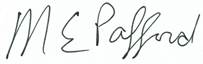 M E Pafford